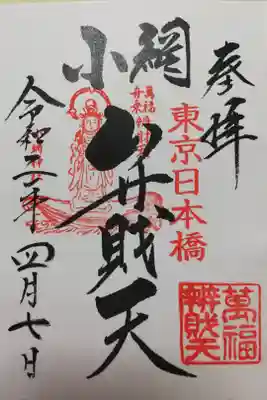 奉拝
東京日本橋
小網
弁財天
萬福
舟乗弁財天
萬福
辨財天
令和二年四月七日